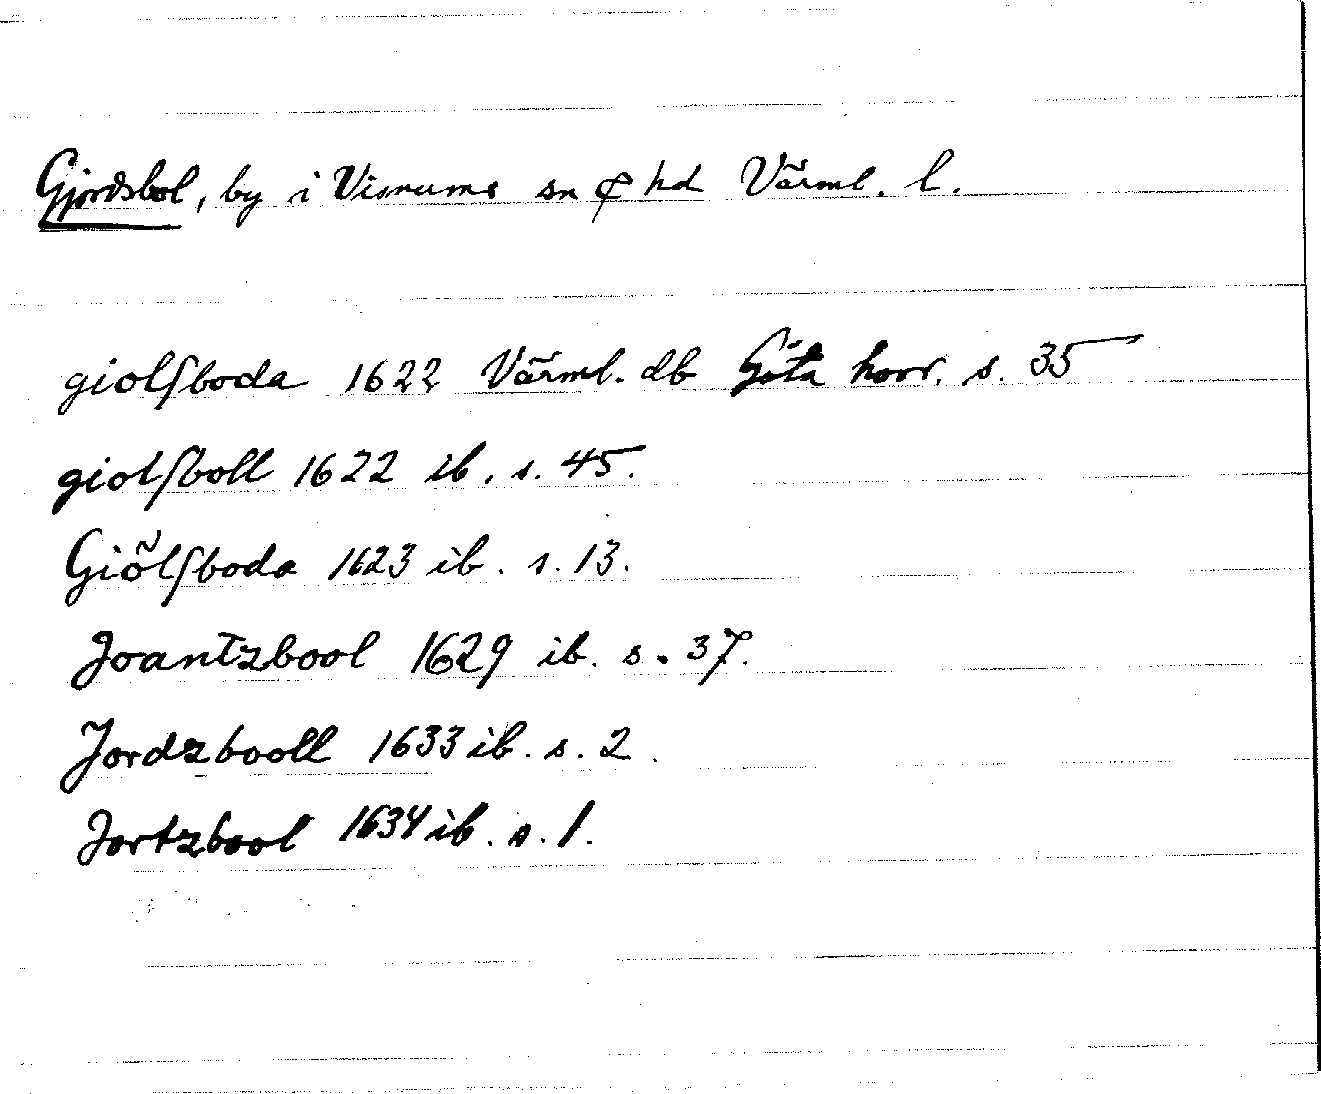 Gjordsbol, by i Visnums sn & hd Värml. l.
giolſboda 1622 Värml. db Göta hovr. s. 35
giolſboll 1622 ib. s. 45.
Giõlſboda 1623 ib. s. 13.
Joantzbool 1629 ib. s. 37.
Jordzbooll 1633 ib. s. 2.
Jortzbool 1634 ib. s. 1.